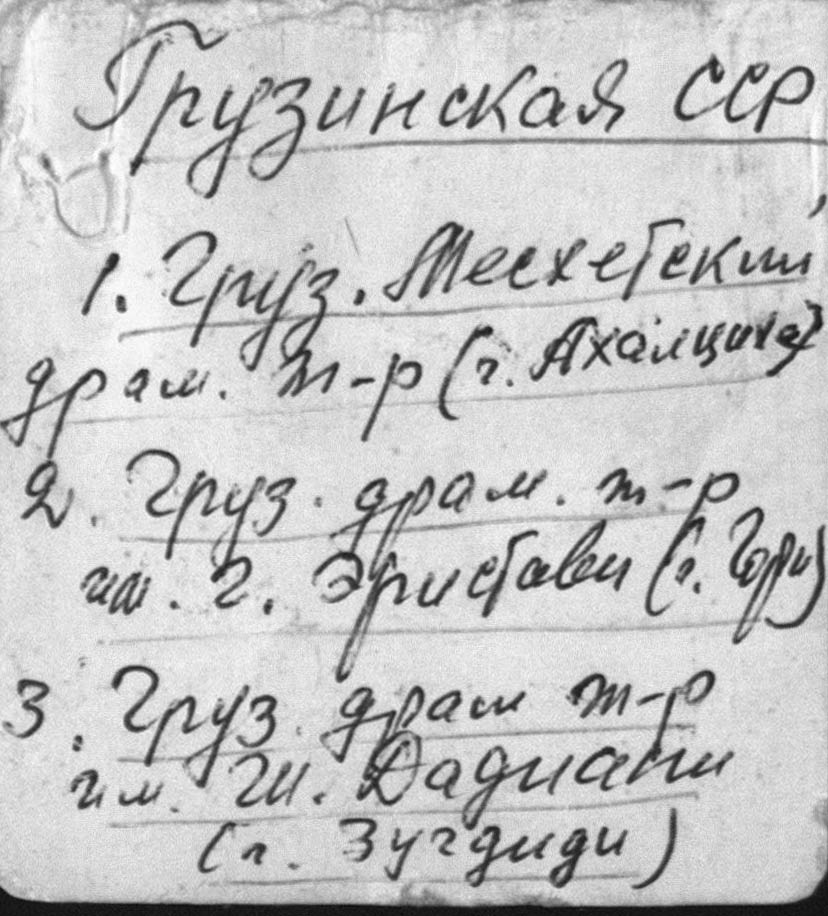 Грузинская ССР
1. Груз. Месхетский
драм. т-р (г. Ахалцихе)
2. Груз. драм. т-р
им. Г. Эристави (г. Гори)
3. Груз. драм т-р
им. Ш. Дадиани
(г. Зугдиди)